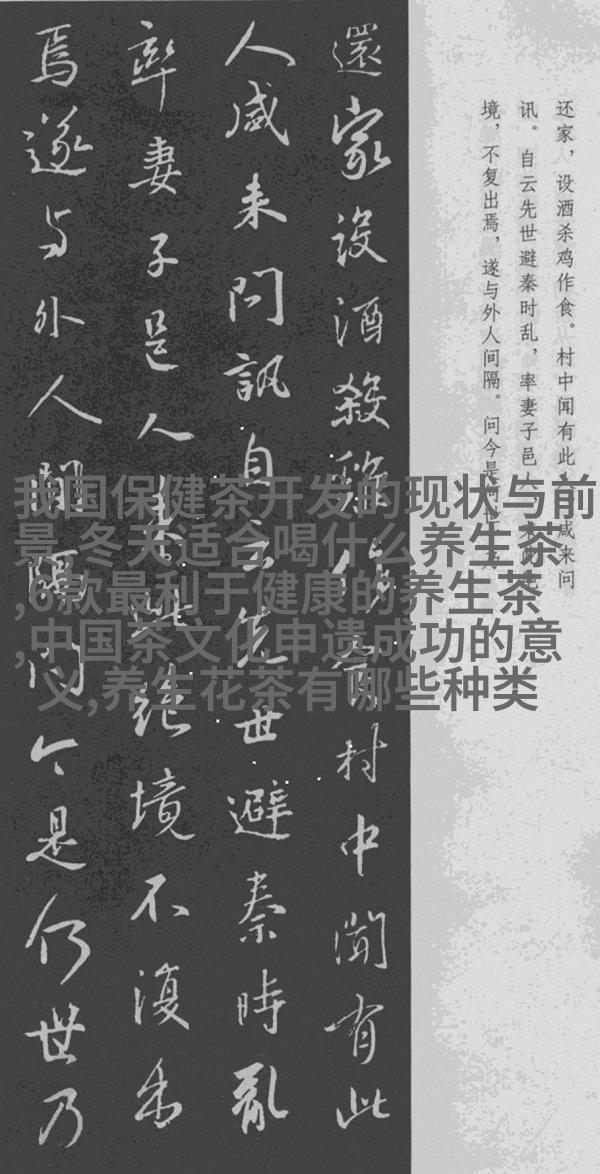 还家，设酒杀鸡作食。村中闻有此人，咸来问
讯。自云先世避秦时乱，率妻子邑人来此绝
境，不复出焉，遂与外人间隔。问今是何世，乃
還家設酒殺鷄作食村中聞有此
人咸来問訊自云先世避秦時亂
率妻子邑人来此绝境不復出
焉遂与外人間隔问今是何世乃
我国保健茶开发的现状与前
景,冬天适合喝什么养生茶
,6款最利于健康的养生茶
,中国茶文化申遗成功的意
义,养生花茶有哪些种类